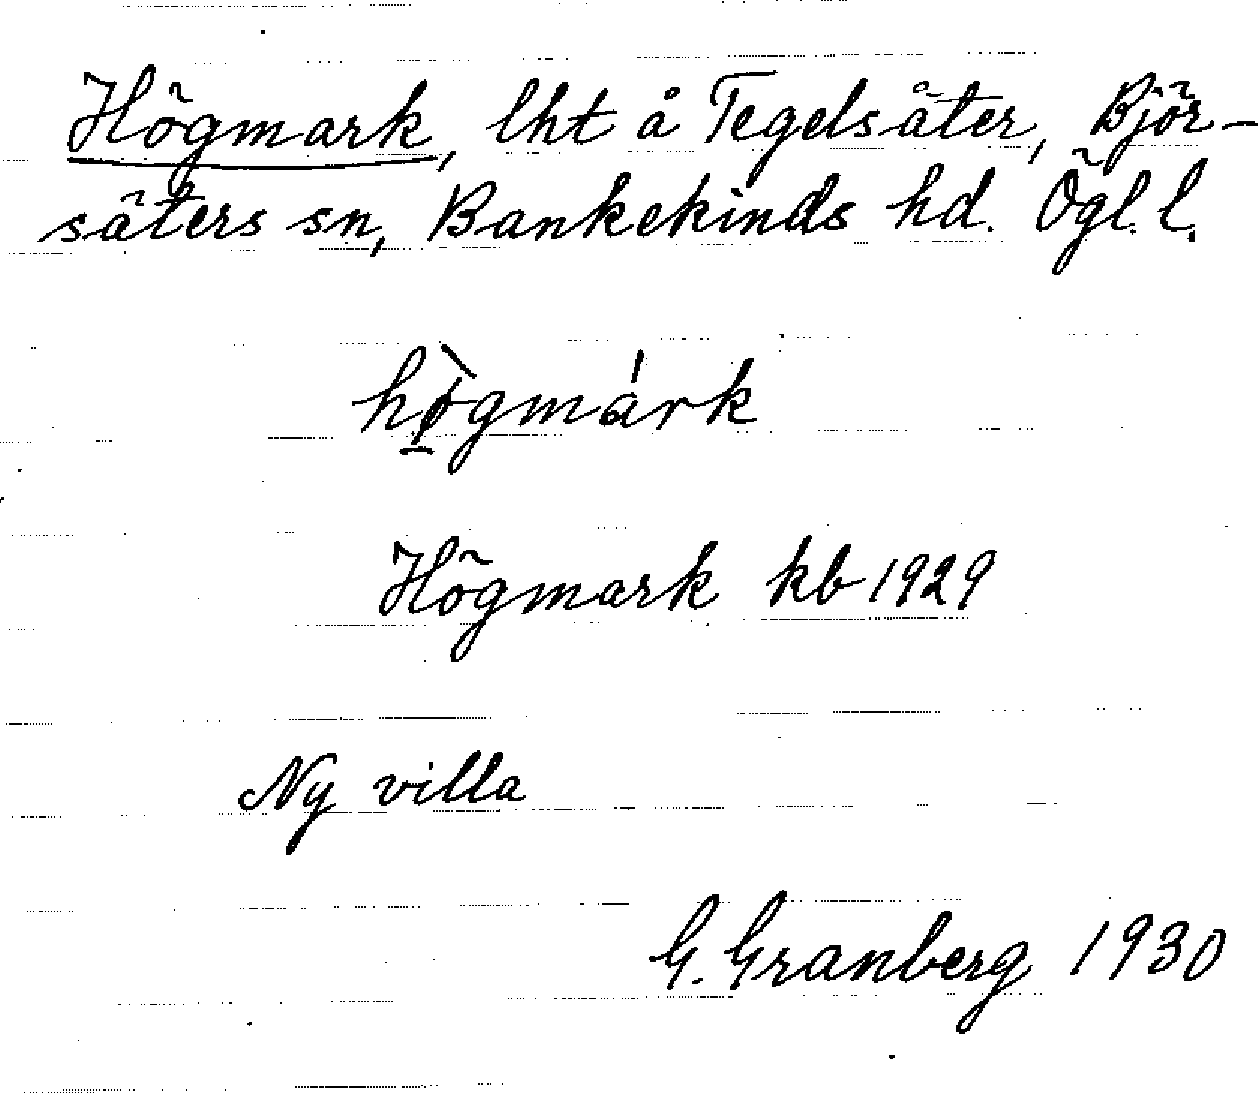 Högmark, lht å Tegelsäter, Björ-
säters sn, Bankekinds hd. Ögl. l.
hø̀gmárk
Högmark kb 1929
Ny villa
G. Granberg 1930